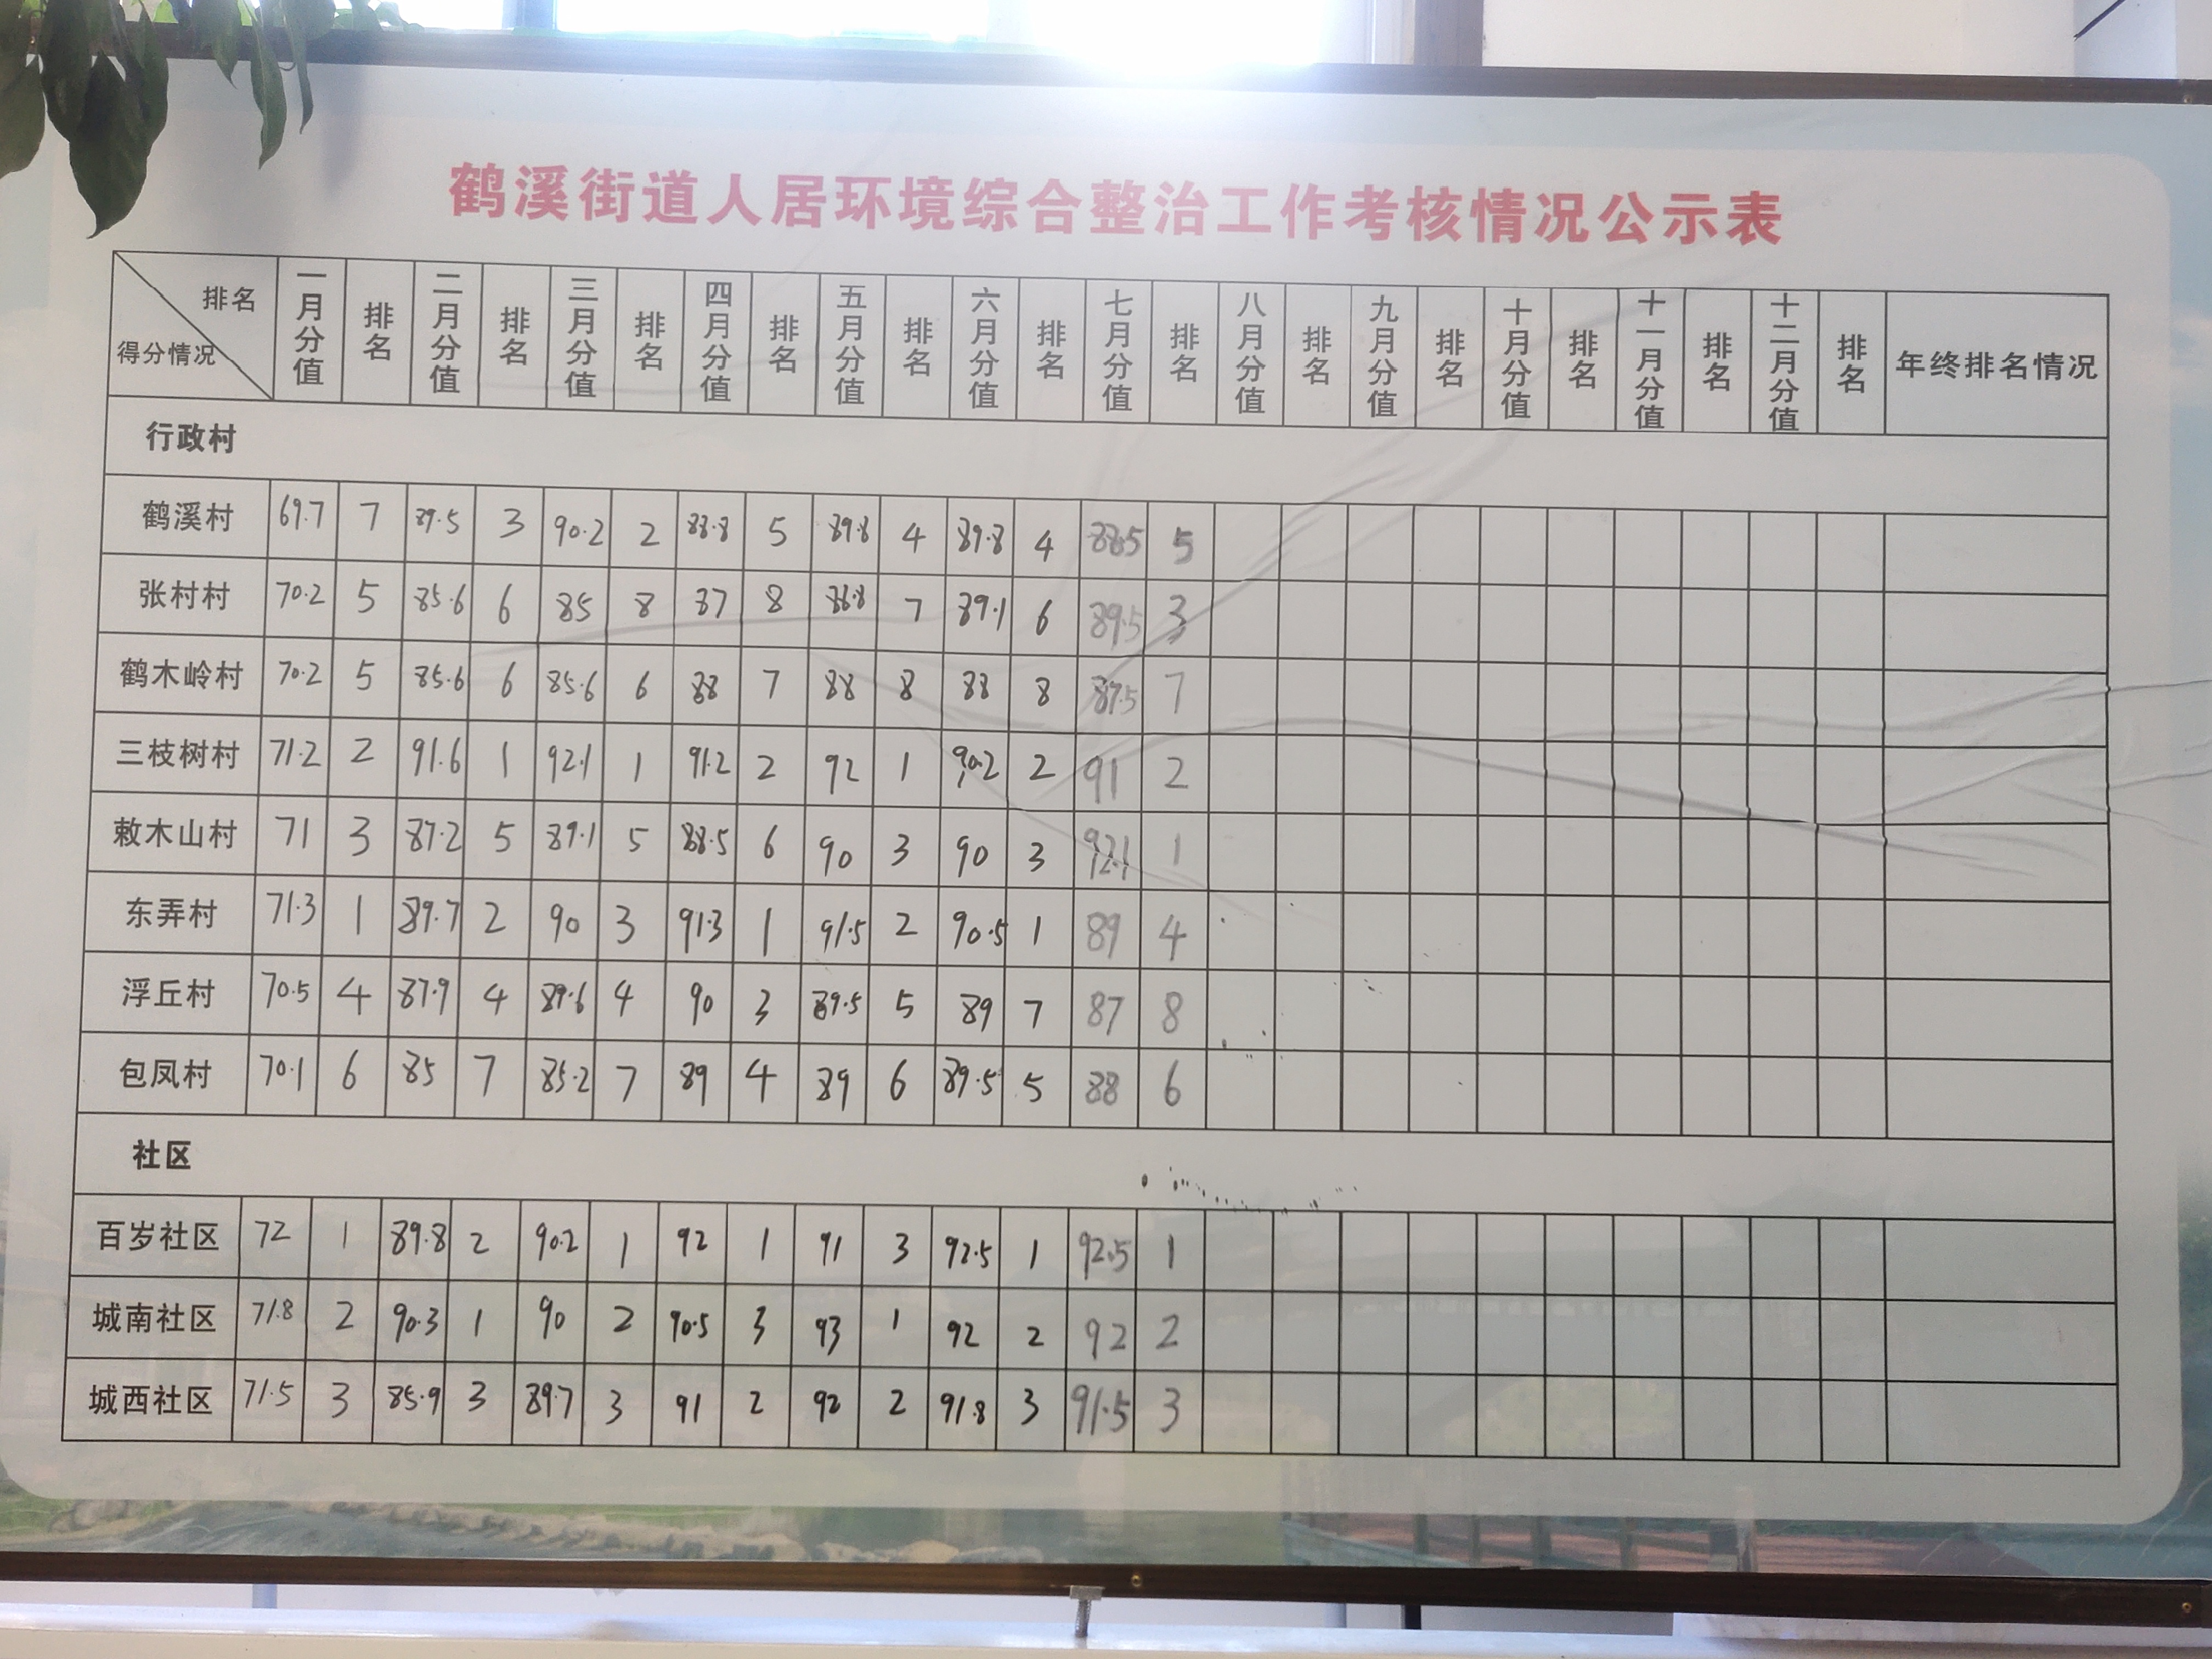 鹤溪街道人居环境综合整治工作考核情况公示表
排名 得分情况 一月分值 排名 二月分值 排名 三月分值 排名 四月分值 排名 五月分值 排名 六月分值 排名 七月分值 排名 八月分值 排名 九月分值 排名 十月分值 排名 十一月分值 排名 十二月分值 排名 年终排名情况
行政村
鹤溪村 69.7 7 89.5 3 90.2 2 88.8 5 89.8 4 89.8 4 88.5 5
张村村 70.2 5 85.6 6 85 8 87 8 88.8 7 89.1 6 89.5 3
鹤木岭村 70.2 5 85.6 6 85.6 6 88 7 88 8 88 8 87.5 7
三枝树村 71.2 2 91.6 1 92.1 1 91.2 2 92 1 90.2 2 91 2
敕木山村 71 3 87.2 5 89.1 5 88.5 6 90 3 90 3 92.1 1
东弄村 71.3 1 89.7 2 90 3 91.3 1 91.5 2 90.5 1 89 4
浮丘村 70.5 4 87.9 4 89.6 4 90 3 89.5 5 89 7 87 8
包凤村 70.1 6 85 7 85.2 7 89 4 89 6 89.5 5 88 6
社区
百岁社区 72 1 89.8 2 90.2 1 92 1 91 3 92.5 1 92.5 1
城南社区 71.8 2 90.3 1 90 2 90.5 3 93 1 92 2 92 2
城西社区 71.5 3 85.9 3 89.7 3 91 2 92 2 91.8 3 91.5 3